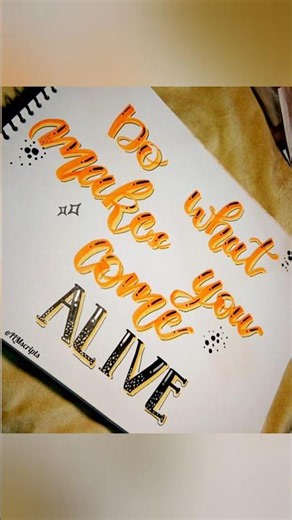 Do what
makes you
come
ALIVE